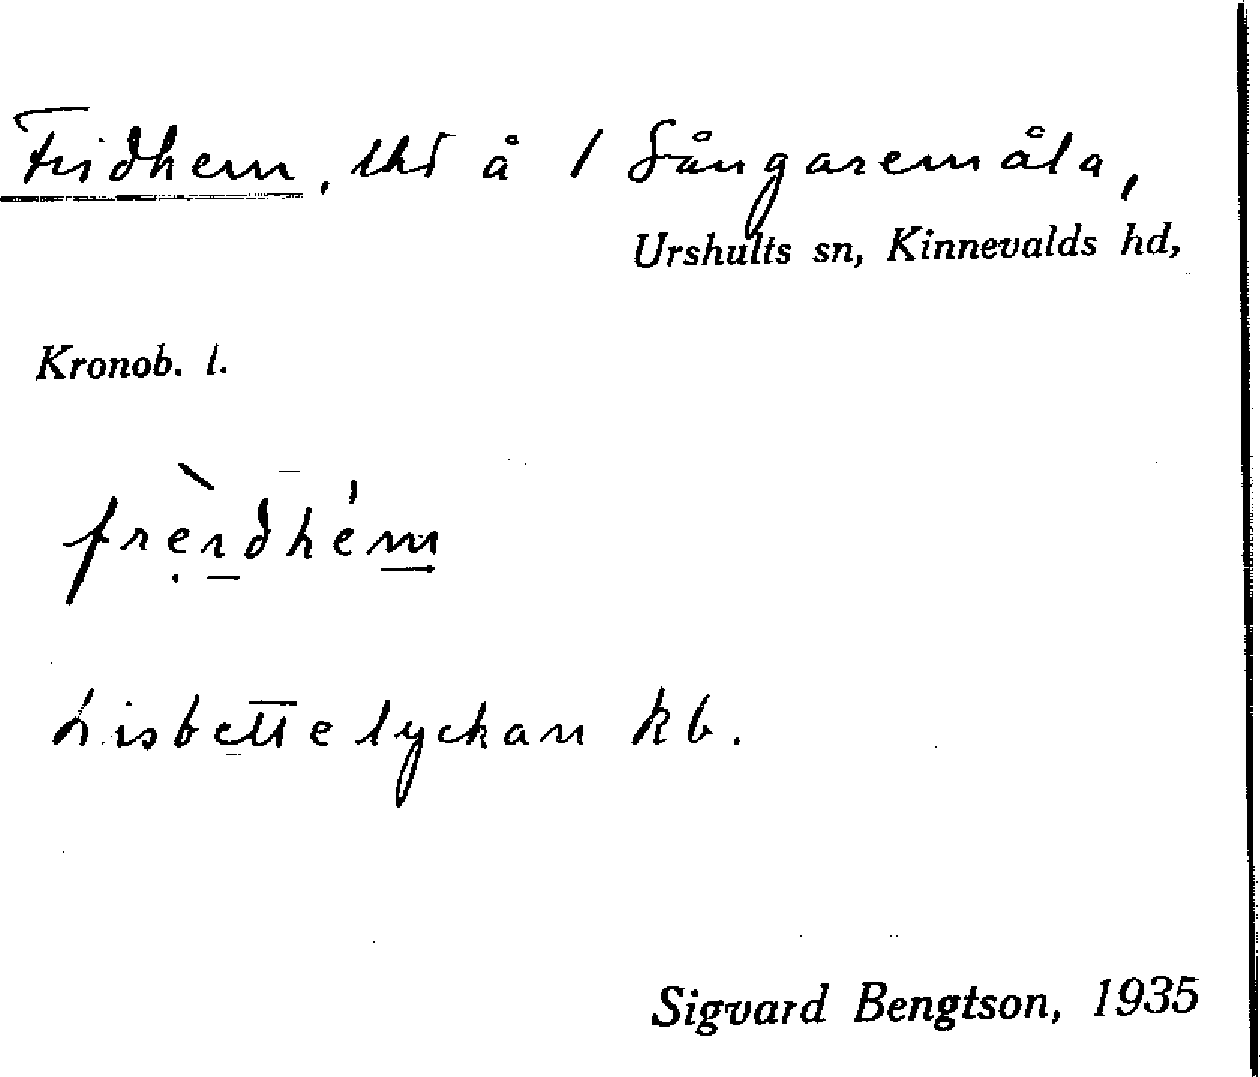 Fridhem, lhs å / Sångaremåla,
Urshults sn, Kinnevalds hd,
Kronob. l.
Lisbettelyckan kb.
Sigvard Bengtson, 1935